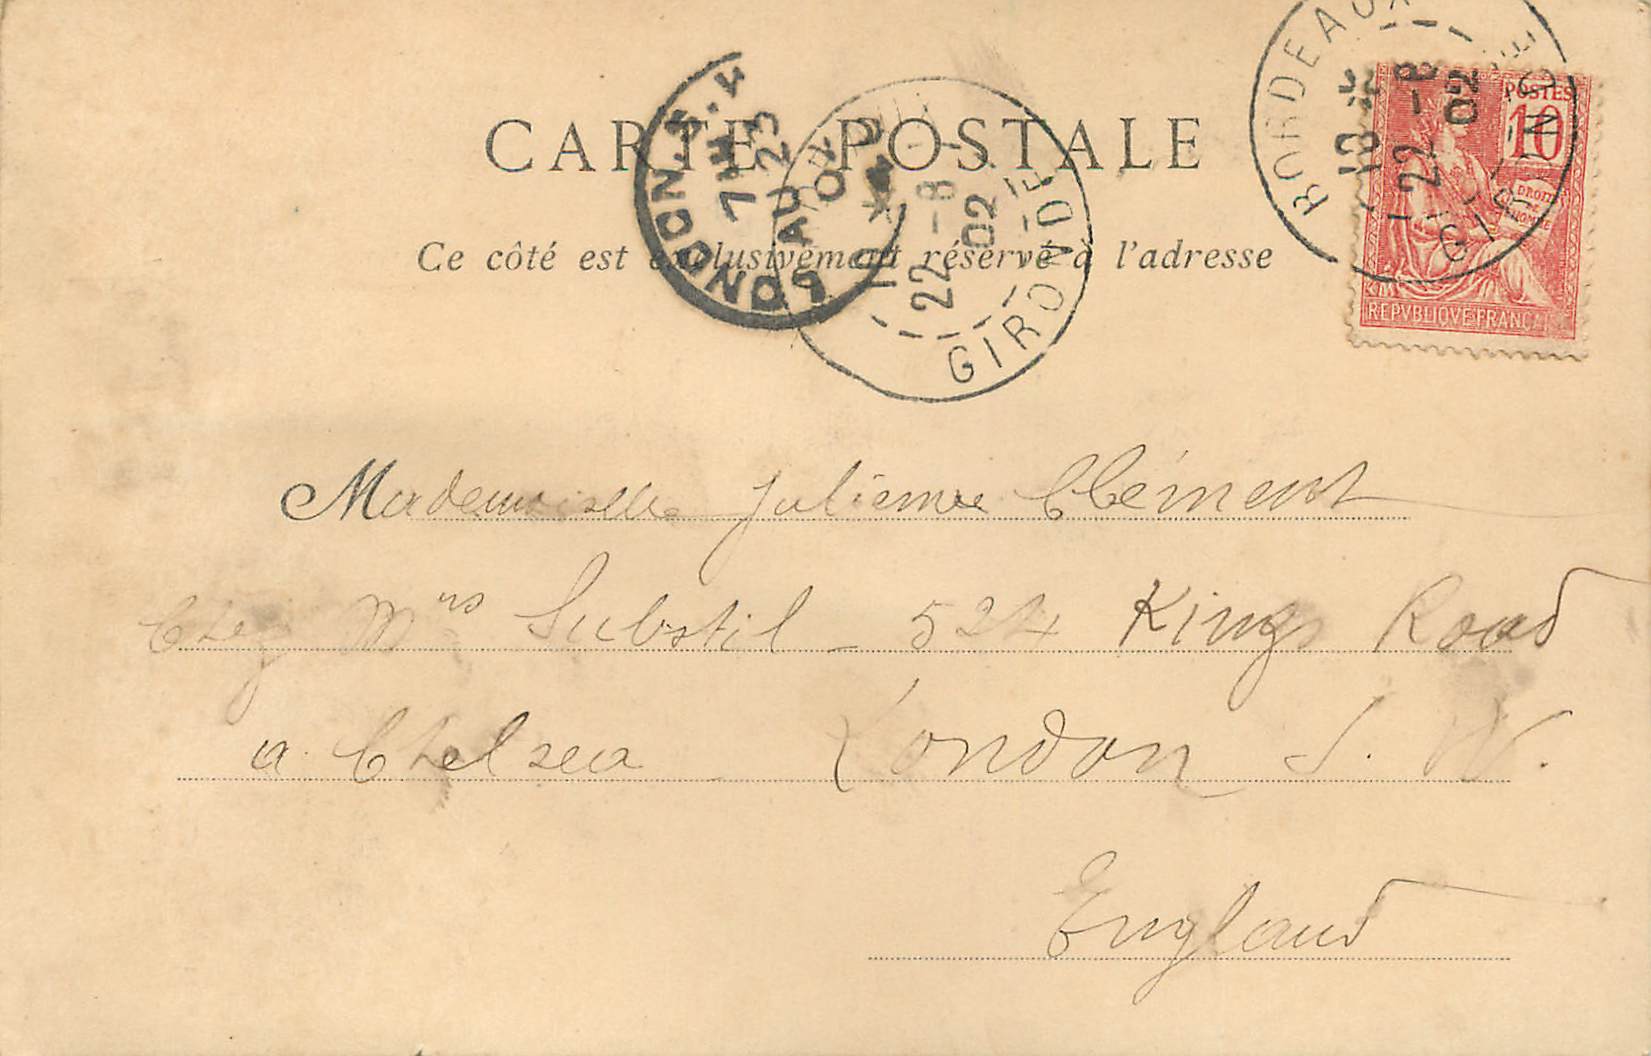 CARTE POSTALE
Ce côté est exclusivement réservé à l'adresse
LONDON. S.W
7 AM
AU 23
02
22 -8
02
GIRONDE
BORDEAUX
22 -8
02
GIRONDE
POSTES
10
DROITS
DE
L'HOMME
REPVBLIQVE FRANÇAISE
Mademoiselle Julienne Clément
Chez Mrs Substil _ 524 Kings Road
a. Chelsea _ London S. W.
England